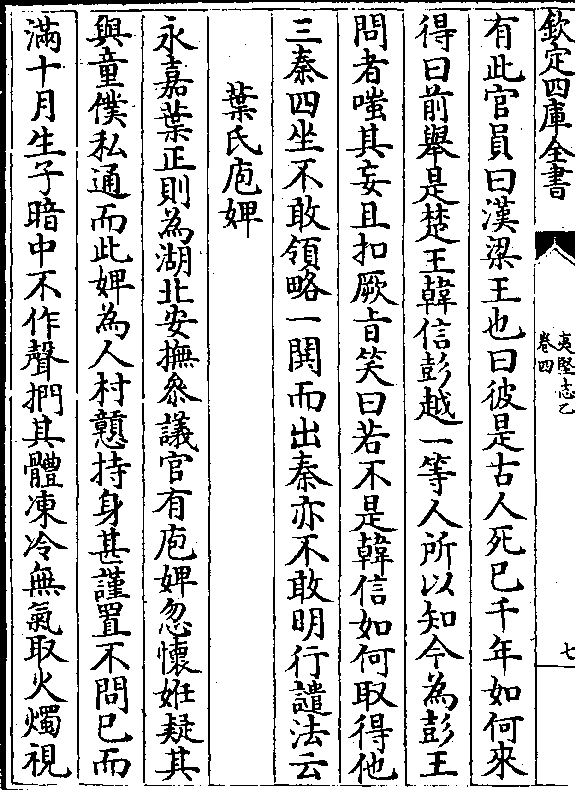 欽定四庫全書
夷堅志乙
卷四
七
有此官員曰漢梁王也曰彼是古人死已千年如何來
得曰前舉是楚王韓信彭越一等人所以知今為彭王
問者嗤其妄且扣厥旨笑曰若不是韓信如何取得他
三秦四坐不敢領略一閧而出秦亦不敢明行譴法云
葉氏庖婢
永嘉葉正則為湖北安撫叅議官有庖婢忽懷姙疑其
與童僕私通而此婢為人村戇持身甚謹置不問已而
滿十月生子暗中不作聲捫其體凍冷無氣取火燭視